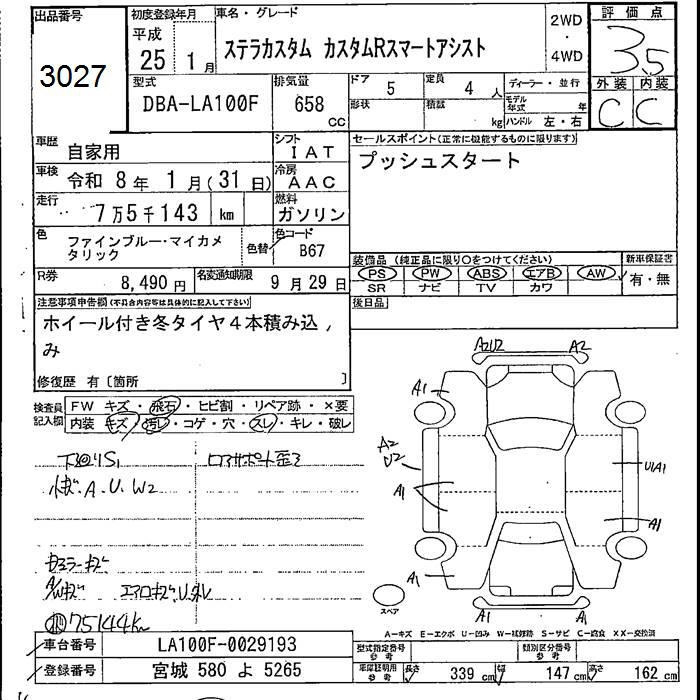 出品番号
3027
初度登録年月
平成
25 1月
車名・グレード
ステラカスタム カスタムRスマートアシスト
2WD
・
4WD
評価点
3.5
外装 内装
C C
型式
DBA-LA100F
排気量
658
CC
ドア 5
定員 4人
形状
積載 kg
ディーラー・並行
モデル年式 年
ハンドル 左・右
車歴 自家用
シフト IAT
車検 令和 8年 1月(31日)
冷房 AAC
走行 7万5千143 km
燃料 ガソリン
色 ファインブルー・マイカメタリック
色替
色コード B67
R券 8,490円
名変通知期限 9月29日
セールスポイント(正常に機能するものに限ります)
プッシュスタート
装備品(純正品に限り○をつけてください)
PS PW ABS エアB AW
SR ナビ TV カワ
新車保証書
有・無
後日品
注意事項申告欄(不具合内容等は具体的に記入して下さい)
ホイール付き冬タイヤ4本積み込み
修復歴 有〔箇所 〕
検査員記入欄
FW キズ・飛石・ヒビ割・リペア跡・×要
内装 キズ・汚レ・コゲ・穴・スレ・キレ・破レ
A.U.W2
75144km
A2U2 A2
A1
A2
U2
A1
A1
U1A1
A1
A1 A1
スペア
A-キズ E-エクボ U-凹み W-補修跡 S-サビ C-腐食 XX-交換済
車台番号 LA100F-0029193
登録番号 宮城 580 よ 5265
型式指定番号 参考
類別区分番号 参考
車庫証明用 参考
長さ 339 cm 幅 147 cm 高さ 162 cm